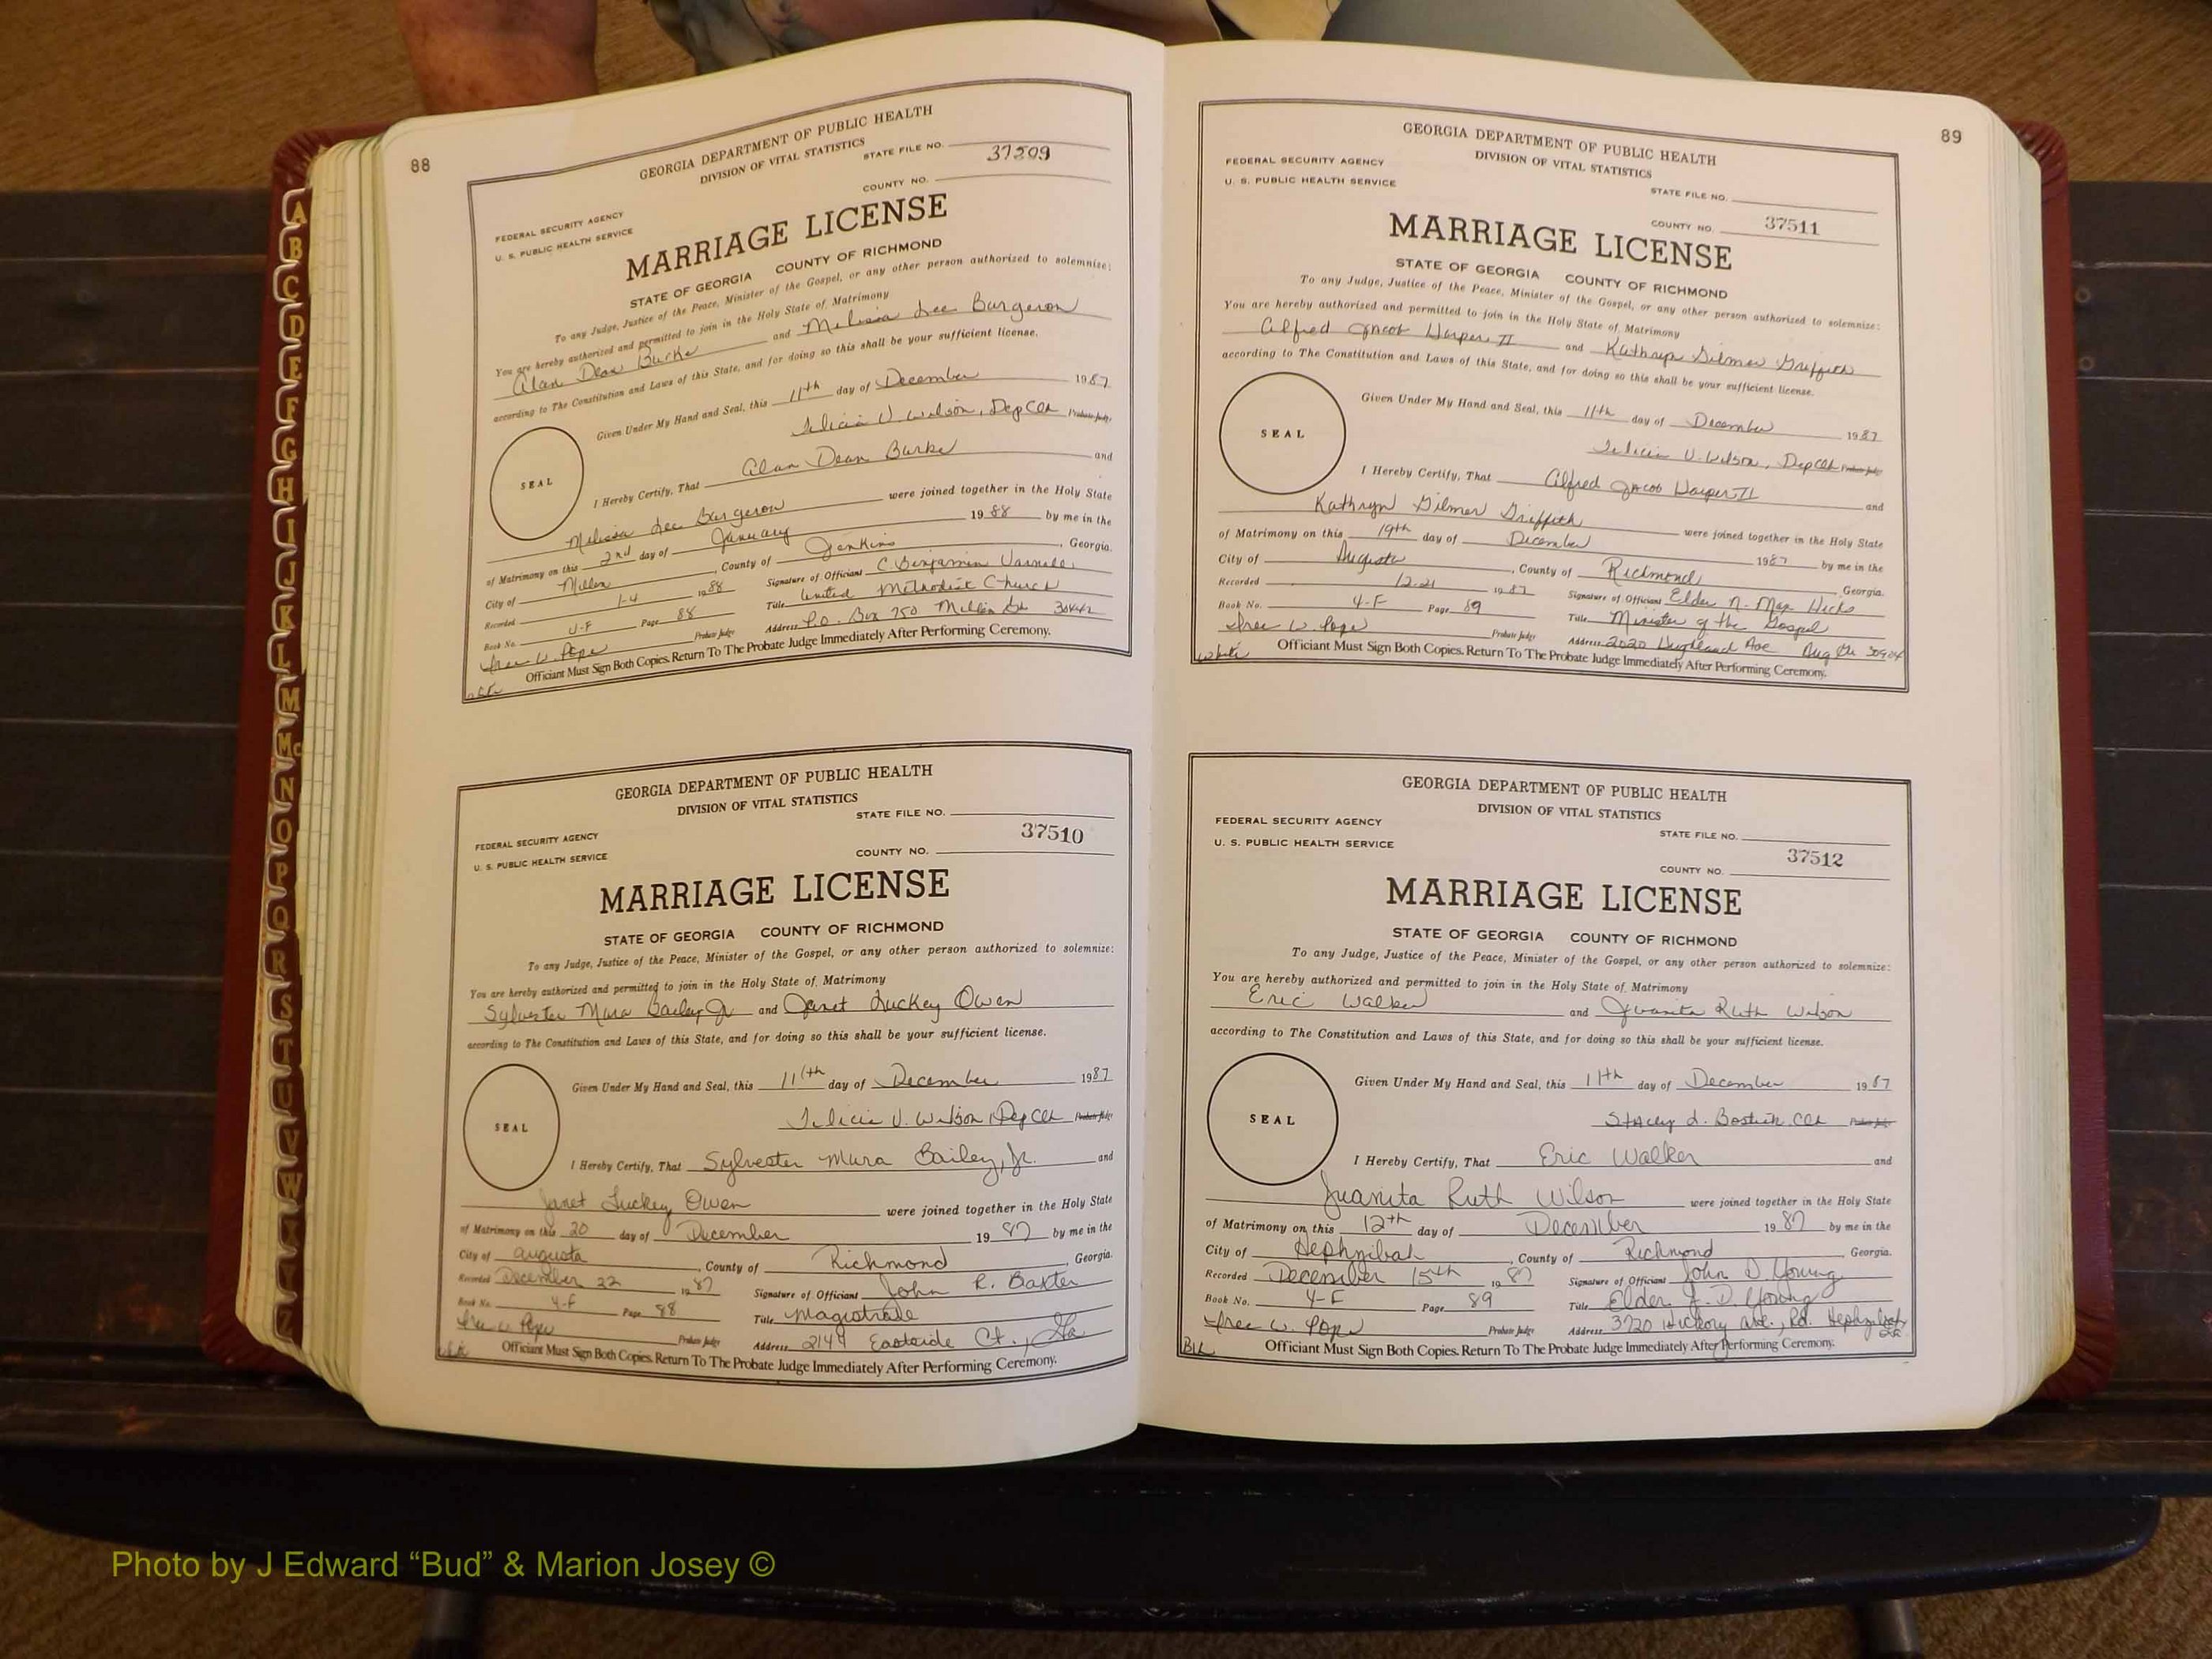 88
GEORGIA DEPARTMENT OF PUBLIC HEALTH
DIVISION OF VITAL STATISTICS
STATE FILE NO.
37509
FEDERAL SECURITY AGENCY
COUNTY NO.
U. S. PUBLIC HEALTH SERVICE
MARRIAGE LICENSE
STATE OF GEORGIA COUNTY OF RICHMOND
To any Judge, Justice of the Peace, Minister of the Gospel, or any other person authorized to solemnize:
You are hereby authorized and permitted to join in the Holy State of Matrimony
Alan Dean Burke and Melissa Lee Burgeron
according to The Constitution and Laws of this State, and for doing so this shall be your sufficient license.
Given Under My Hand and Seal, this 11th day of December 1987
Felicia V. Wilson, Dep Clk Probate Judge
SEAL
I Hereby Certify, That Alan Dean Burke and
Melissa Lee Burgeron were joined together in the Holy State
of Matrimony on this 2nd day of January 19 88 by me in the
City of Millen, County of Jenkins, Georgia.
Recorded 1-4 1988 Signature of Officiant C Benjamin
Book No. 4-F Page 88 Title United Methodist Church
Probate Judge Address P.O. Box 750 Millen Ga 30442
Officiant Must Sign Both Copies. Return To The Probate Judge Immediately After Performing Ceremony.
GEORGIA DEPARTMENT OF PUBLIC HEALTH
DIVISION OF VITAL STATISTICS
STATE FILE NO.
37510
FEDERAL SECURITY AGENCY
COUNTY NO.
U. S. PUBLIC HEALTH SERVICE
MARRIAGE LICENSE
STATE OF GEORGIA COUNTY OF RICHMOND
To any Judge, Justice of the Peace, Minister of the Gospel, or any other person authorized to solemnize:
You are hereby authorized and permitted to join in the Holy State of Matrimony
Sylvester Mura Bailey Jr and Janet Luckey Owen
according to The Constitution and Laws of this State, and for doing so this shall be your sufficient license.
Given Under My Hand and Seal, this 11th day of December 1987
Felicia V. Wilson, Dep Clk Probate Judge
SEAL
I Hereby Certify, That Sylvester Mura Bailey, Jr. and
Janet Luckey Owen were joined together in the Holy State
of Matrimony on this 20 day of December 19 87 by me in the
City of Augusta, County of Richmond, Georgia.
Recorded December 22 1987 Signature of Officiant John R. Baxter
Book No. 4-F Page 88 Title Magistrate
W. Pope Probate Judge Address 2144 Eastside Ct., Ga
Officiant Must Sign Both Copies. Return To The Probate Judge Immediately After Performing Ceremony.
89
GEORGIA DEPARTMENT OF PUBLIC HEALTH
DIVISION OF VITAL STATISTICS
FEDERAL SECURITY AGENCY
U. S. PUBLIC HEALTH SERVICE
STATE FILE NO.
COUNTY NO. 37511
MARRIAGE LICENSE
STATE OF GEORGIA COUNTY OF RICHMOND
To any Judge, Justice of the Peace, Minister of the Gospel, or any other person authorized to solemnize:
You are hereby authorized and permitted to join in the Holy State of Matrimony
Alfred Jacob Harper II and Kathryn Gilmer Griffith
according to The Constitution and Laws of this State, and for doing so this shall be your sufficient license.
Given Under My Hand and Seal, this 11th day of December 1987
Felicia V. Wilson, Dep Clk Probate Judge
SEAL
I Hereby Certify, That Alfred Jacob Harper II and
Kathryn Gilmer Griffith were joined together in the Holy State
of Matrimony on this 19th day of December 1987 by me in the
City of Augusta, County of Richmond Georgia.
Recorded 12-21 1987 Signature of Officiant Elder N. Max Hicks
Book No. 4-F Page 89 Title Minister of the Gospel
W. Pope Probate Judge Address 2020 Highland Ave Aug Ga 30904
White Officiant Must Sign Both Copies. Return To The Probate Judge Immediately After Performing Ceremony.
GEORGIA DEPARTMENT OF PUBLIC HEALTH
DIVISION OF VITAL STATISTICS
FEDERAL SECURITY AGENCY
STATE FILE NO.
U. S. PUBLIC HEALTH SERVICE
37512
COUNTY NO.
MARRIAGE LICENSE
STATE OF GEORGIA COUNTY OF RICHMOND
To any Judge, Justice of the Peace, Minister of the Gospel, or any other person authorized to solemnize:
You are hereby authorized and permitted to join in the Holy State of Matrimony
Eric Walker and Juanita Ruth Wilson
according to The Constitution and Laws of this State, and for doing so this shall be your sufficient license.
Given Under My Hand and Seal, this 11th day of December 1987
Stacey L. Bostick Clk Probate Judge
SEAL
I Hereby Certify, That Eric Walker and
Juanita Ruth Wilson were joined together in the Holy State
of Matrimony on this 12th day of December 1987 by me in the
City of Hephzibah, County of Richmond, Georgia.
Recorded December 15th 1987 Signature of Officiant John D. Young
Book No. 4-F Page 89 Title Elder J. D. Young
W. Pope Probate Judge Address 3720 Hickory Rd. Hephzibah Ga
Blk Officiant Must Sign Both Copies. Return To The Probate Judge Immediately After Performing Ceremony.
A
B
C
D
E
F
G
H
I
J
K
L
M
Mc
N
O
P
Q
R
S
T
U
V
W
X
Y
Z
Photo by J Edward “Bud” & Marion Josey ©